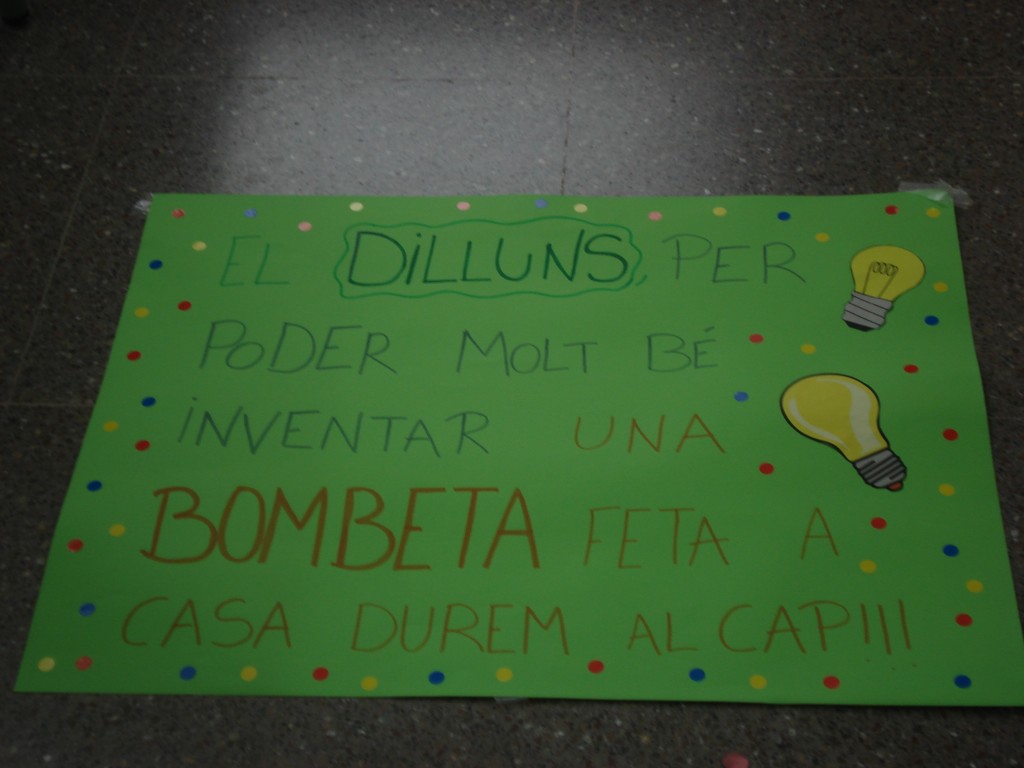 EL DiLLUNS, PER
PODER MOLT BÉ
iNVENTAR UNA
BOMBETA FETA A
CASA DUREM AL CAP!!!